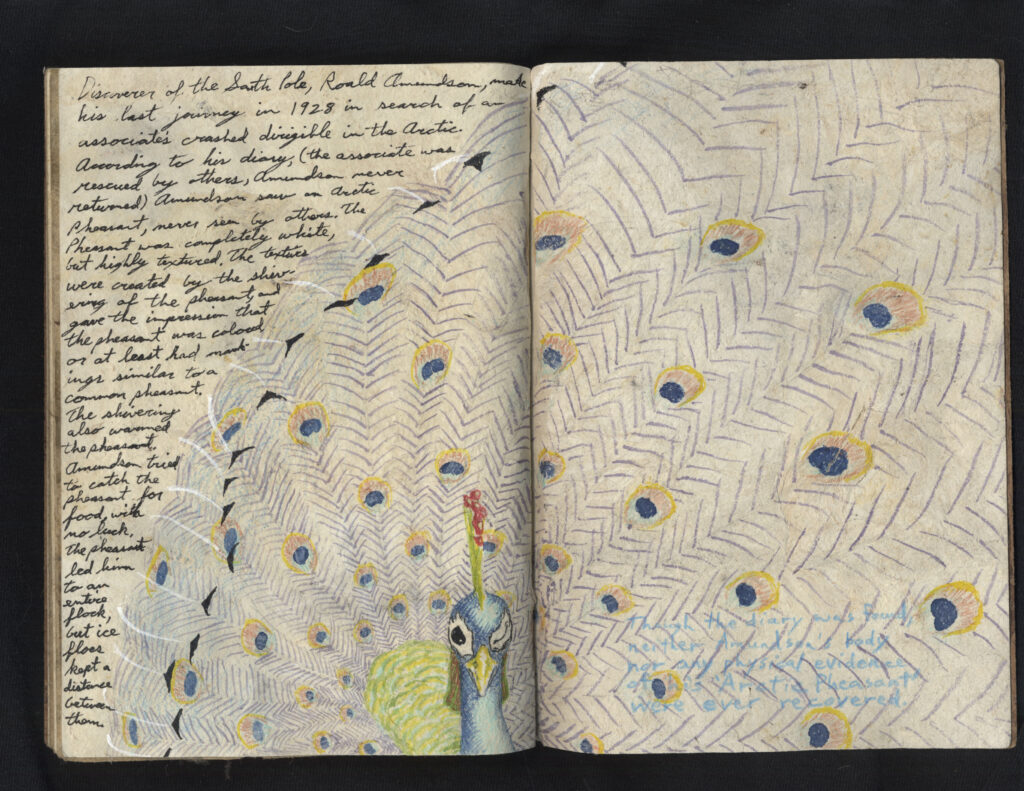 Discoverer of the South Pole, Roald Amundson, made
his last journey in 1928 in search of an
associate's crashed dirigible in the Arctic.
According to his diary, (the associate was
rescued by others, Amundson never
returned) Amundson saw an Arctic
Pheasant, never seen by others. The
Pheasant was completely white,
but highly textured. The textures
were created by the shiv-
ering of the pheasant, and
gave the impression that
the pheasant was colored
or at least had mark-
ings similar to a
common pheasant.
The shivering
also warmed
the pheasant.
Amundson tried
to catch the
pheasant for
food, with
no luck.
The pheasant
led him
to an
entire
flock,
but ice
floes
kept a
distance
between
them.
Though the diary was found,
neither Amundson's body
nor any physical evidence
of his "Arctic Pheasant"
were ever recovered.